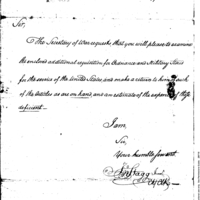 Sir,
The Secretary of War requests that you will please to examine
the enclosed additional requisition for Ordnance and Military Stores
for the service of the United States and make a return to him of such
of the Articles as are on hand, and an estimate of the expense of those
deficient.
I am
Sir,
Your humble servant
Jno Stagg Junr